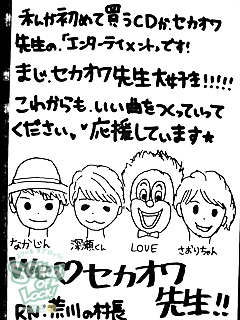 私が初めて買うCDが、セカオワ
先生の、「エンターテイメント」です！
まじ、セカオワ先生大好き！！！！！
これからも、いい曲をつくっていって
ください。♥応援しています★
なかじん
深瀬くん
LOVE
さおりちゃん
We♡セカオワ
先生！！
RN：荒川の村長